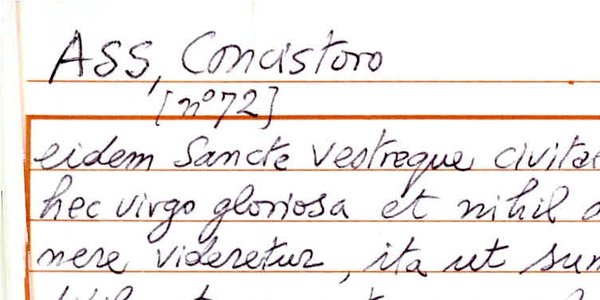 ASS, Concistoro
[n° 72]
eidem Sancte vestreque civitae
hec virgo gloriosa et nihil
nere videretur, ita ut sum